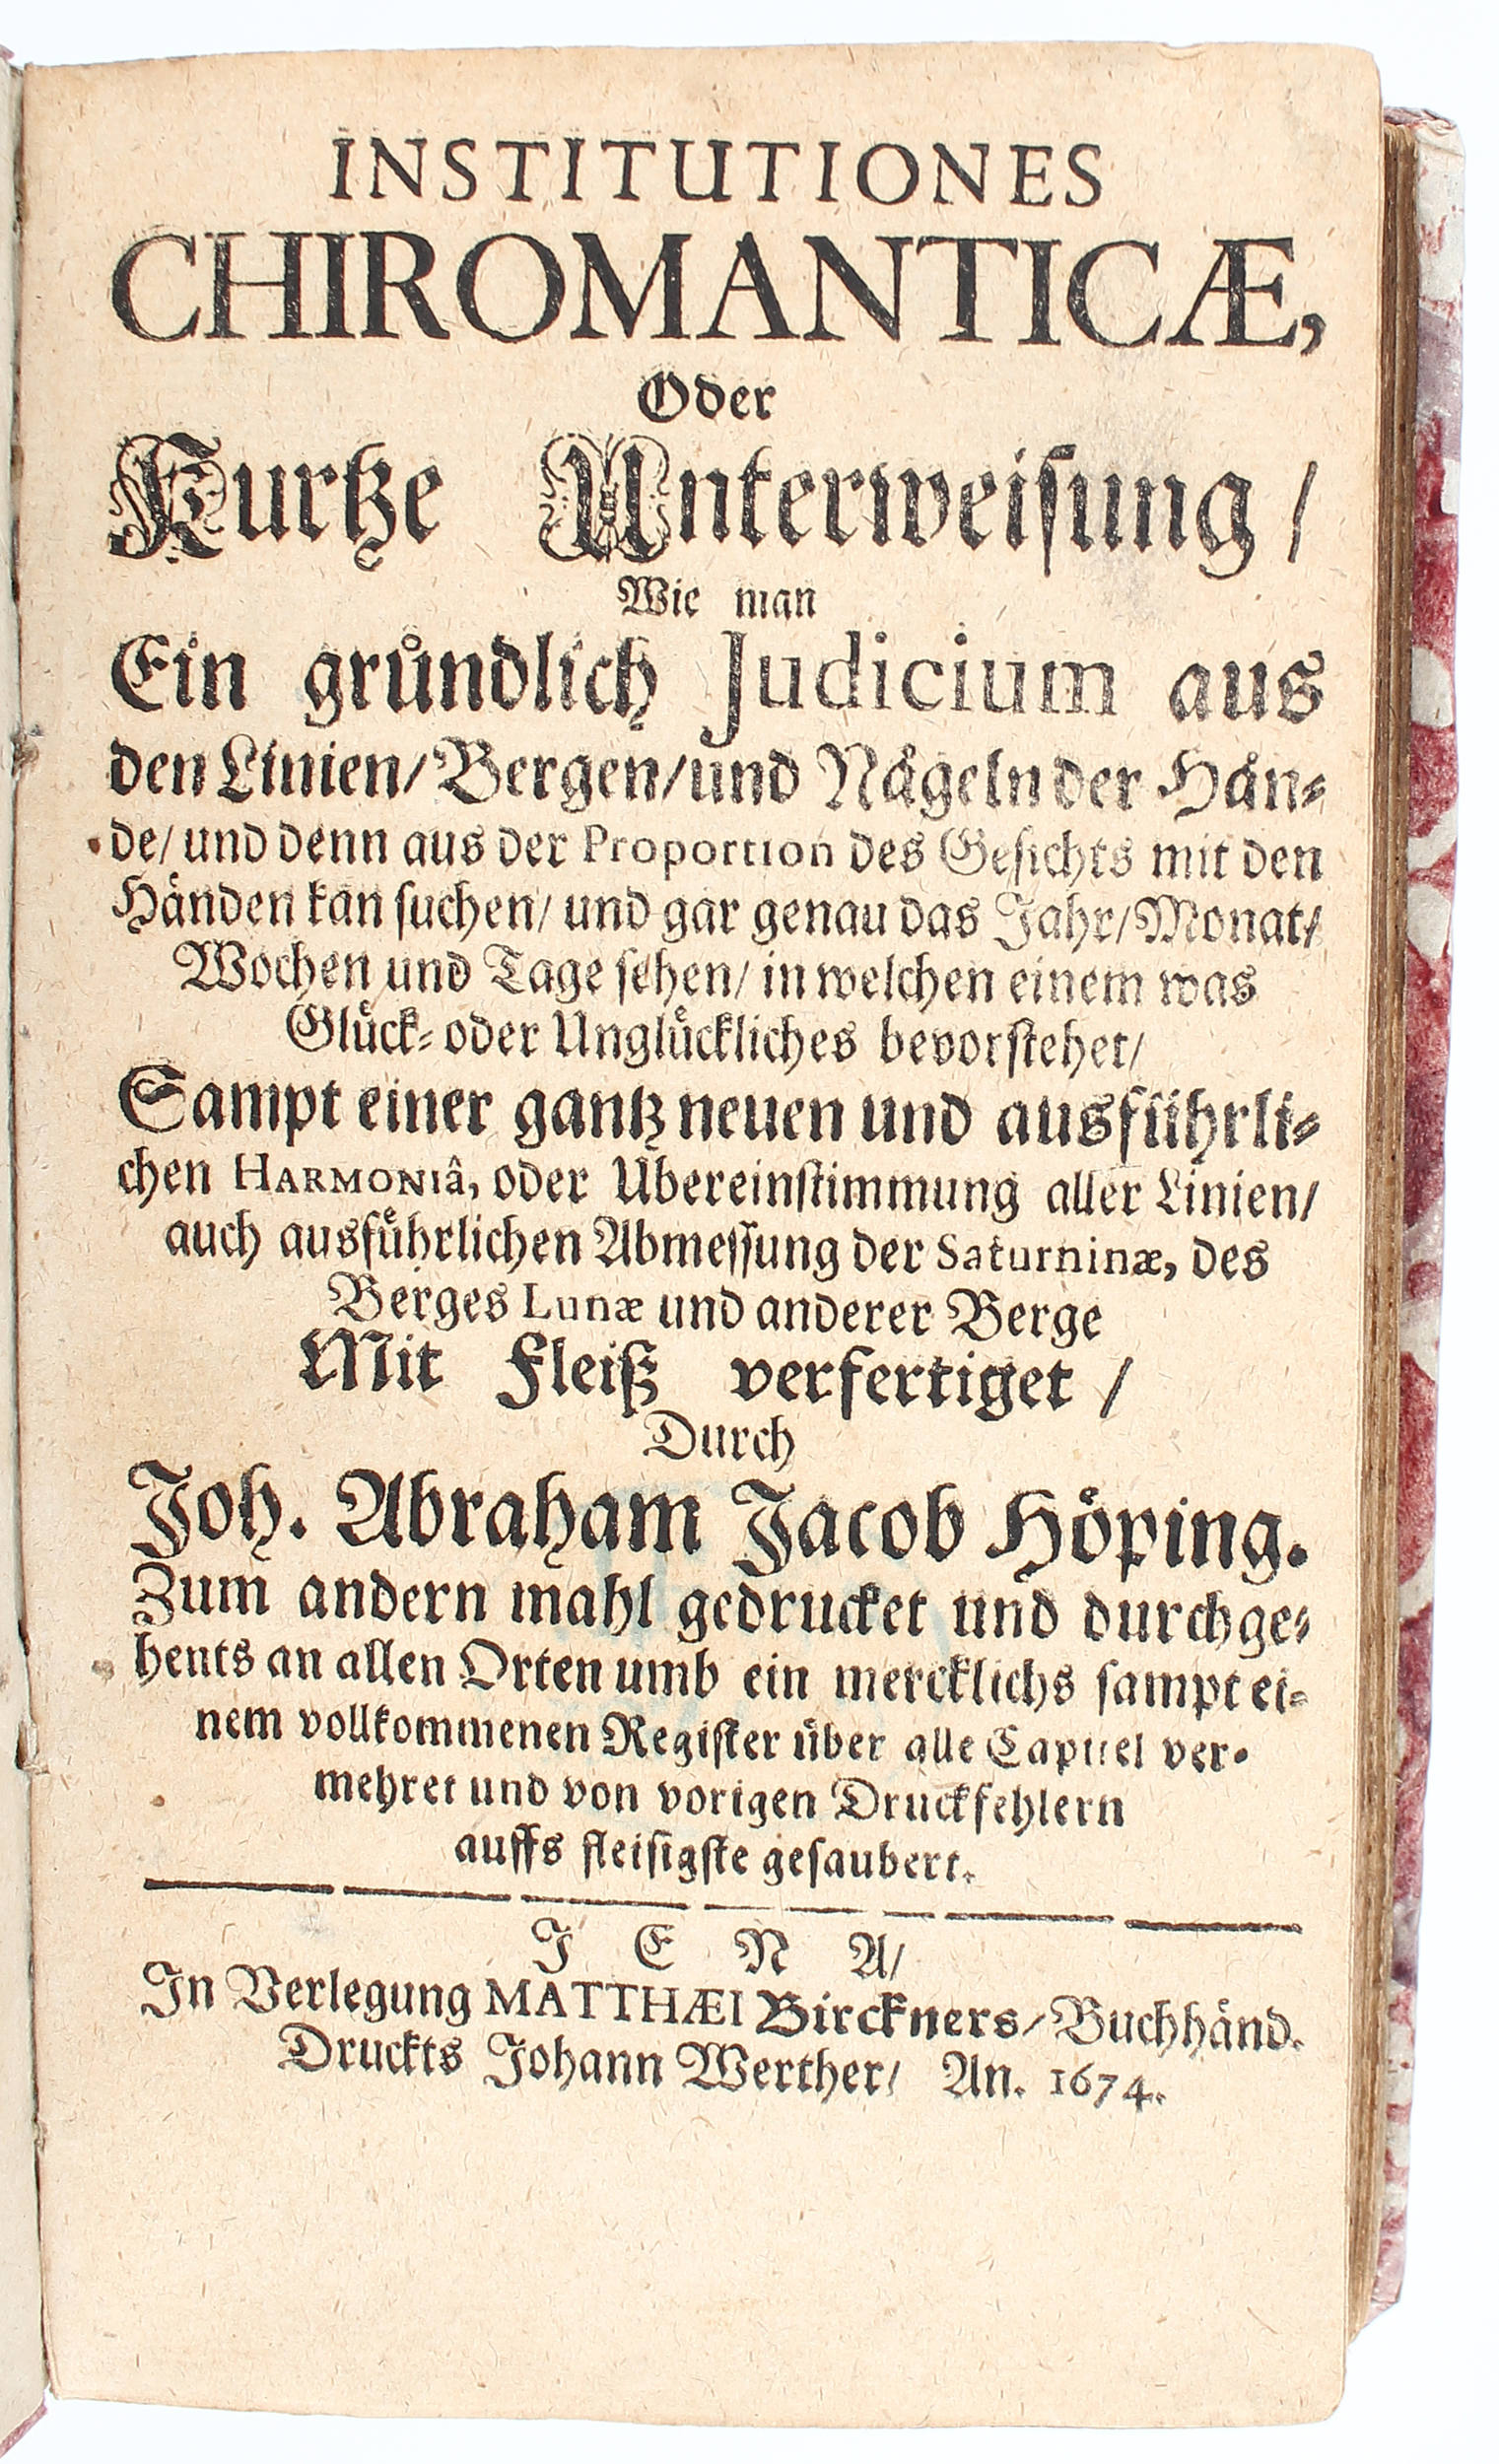 INSTITUTIONES
CHIROMANTICÆ,
Oder
Kurtze Unterweisung /
Wie man
Ein gruͤndlich Judicium aus
den Linien/ Bergen/ und Naͤgeln der Haͤn-
de/ und denn aus der Proportion des Gesichts mit den
Haͤnden kan suchen/ und gar genau das Jahr/ Monat/
Wochen und Tage sehen/ in welchen einem was
Gluͤck- oder Ungluͤckliches bevorstehet/
Sampt einer gantz neuen und ausfuͤhrli-
chen HARMONIâ, oder Ubereinstimmung aller Linien/
auch ausfuͤhrlichen Abmessung der Saturninæ, des
Berges Lunæ und anderer Berge
Mit Fleiß verfertiget /
Durch
Joh. Abraham Jacob Hoͤping.
Zum andern mahl gedrucket und durchge-
hents an allen Orten umb ein mercklichs sampt ei-
nem vollkommenen Register uͤber alle Capitel ver-
mehret und von vorigen Druckfehlern
auffs fleisigste gesaubert.
J E N A/
In Verlegung MATTHÆI Birckners/ Buchhaͤnd.
Druckts Johann Werther/ An. 1674.